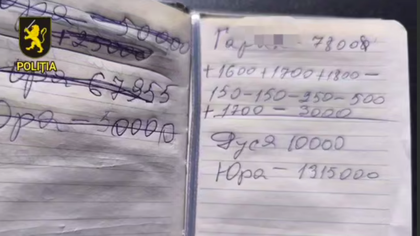 POLITIA
Юра – 50000
+ 25000
Юра 67955
Юра – 50000
Гар – 78008
+1600+1700+1800–
150–150–350–500
+1700 – 3000
Дуся 10000
Юра – 1315000